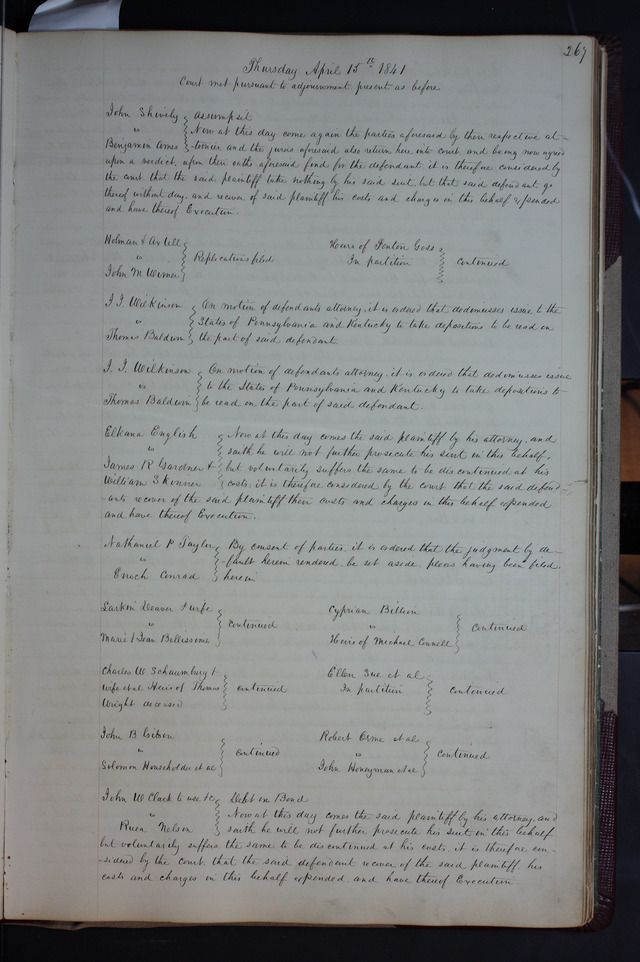 267
Thursday April 15th 1841
Court met pursuant to adjournment, present as before
John Shively } assumpsit
" } Now at this day come again the parties aforesaid by their respective at-
Benjamin Ames } torneies and the jurors aforesaid also return here into court, and being now agreed
upon a verdict, upon their oaths aforesaid find for the defendant, it is therefore considered by
the court that the said plaintiff take nothing by his said suit, but that said defendant go
thereof without day, and recover of said plaintiff his costs and charges in this behalf expended
and have thereof Execution.
Holman & Axtell } Heirs of Fenton Goss }
" } Replications filed In partition } continued
John M Wimer }
I. I. Wilkinson } On motion of defendants attorney, it is ordered that dedimusses issue to the
" } States of Pennsylvania and Kentucky to take depositions to be read on
Thomas Baldwin } the part of said defendant
I. I. Wilkinson } On motion of defendants attorney, it is ordered that dedimusses issue
" } to the States of Pennsylvania and Kentucky to take depositions to
Thomas Baldwin } be read on the part of said defendant.
Elkana English } Now at this day comes the said plaintiff by his attorney, and
" } saith he will not further prosecute his suit in this behalf,
James R Gardner & } but voluntarily suffers the same to be discontinued at his
William Skinner } costs, it is therefore considered by the court that the said defend-
ants recover of the said plaintiff their costs and charges in this behalf expended
and have thereof Execution.
Nathaniel P Taylor } By consent of parties, it is ordered that the judgment by de-
" } fault herein rendered, be set aside, pleas having been filed
Enoch Conrad } herein
Larkin Deaver & wife } Cyprian Billion }
" } continued " } continued
Marie & Jean Bellissome } Heirs of Michael Connell }
Charles W Schaumburg & } Ellen Sue et al }
wife et al Heirs of Thomas } continued In partition } continued
Wright deceased }
John B Gibson } Robert Orme et al }
" } continued " } continued
Solomon Householder et al } John Honeyman et al }
John W Clark to use &c } Debt on Bond
" } Now at this day comes the said plaintiff by his attorney, and
Nelson } saith he will not further prosecute his suit in this behalf
but voluntarily suffers the same to be discontinued at his costs, it is therefore con-
sidered by the court, that the said defendant recover of the said plaintiff his
costs and charges in this behalf expended and have thereof Execution